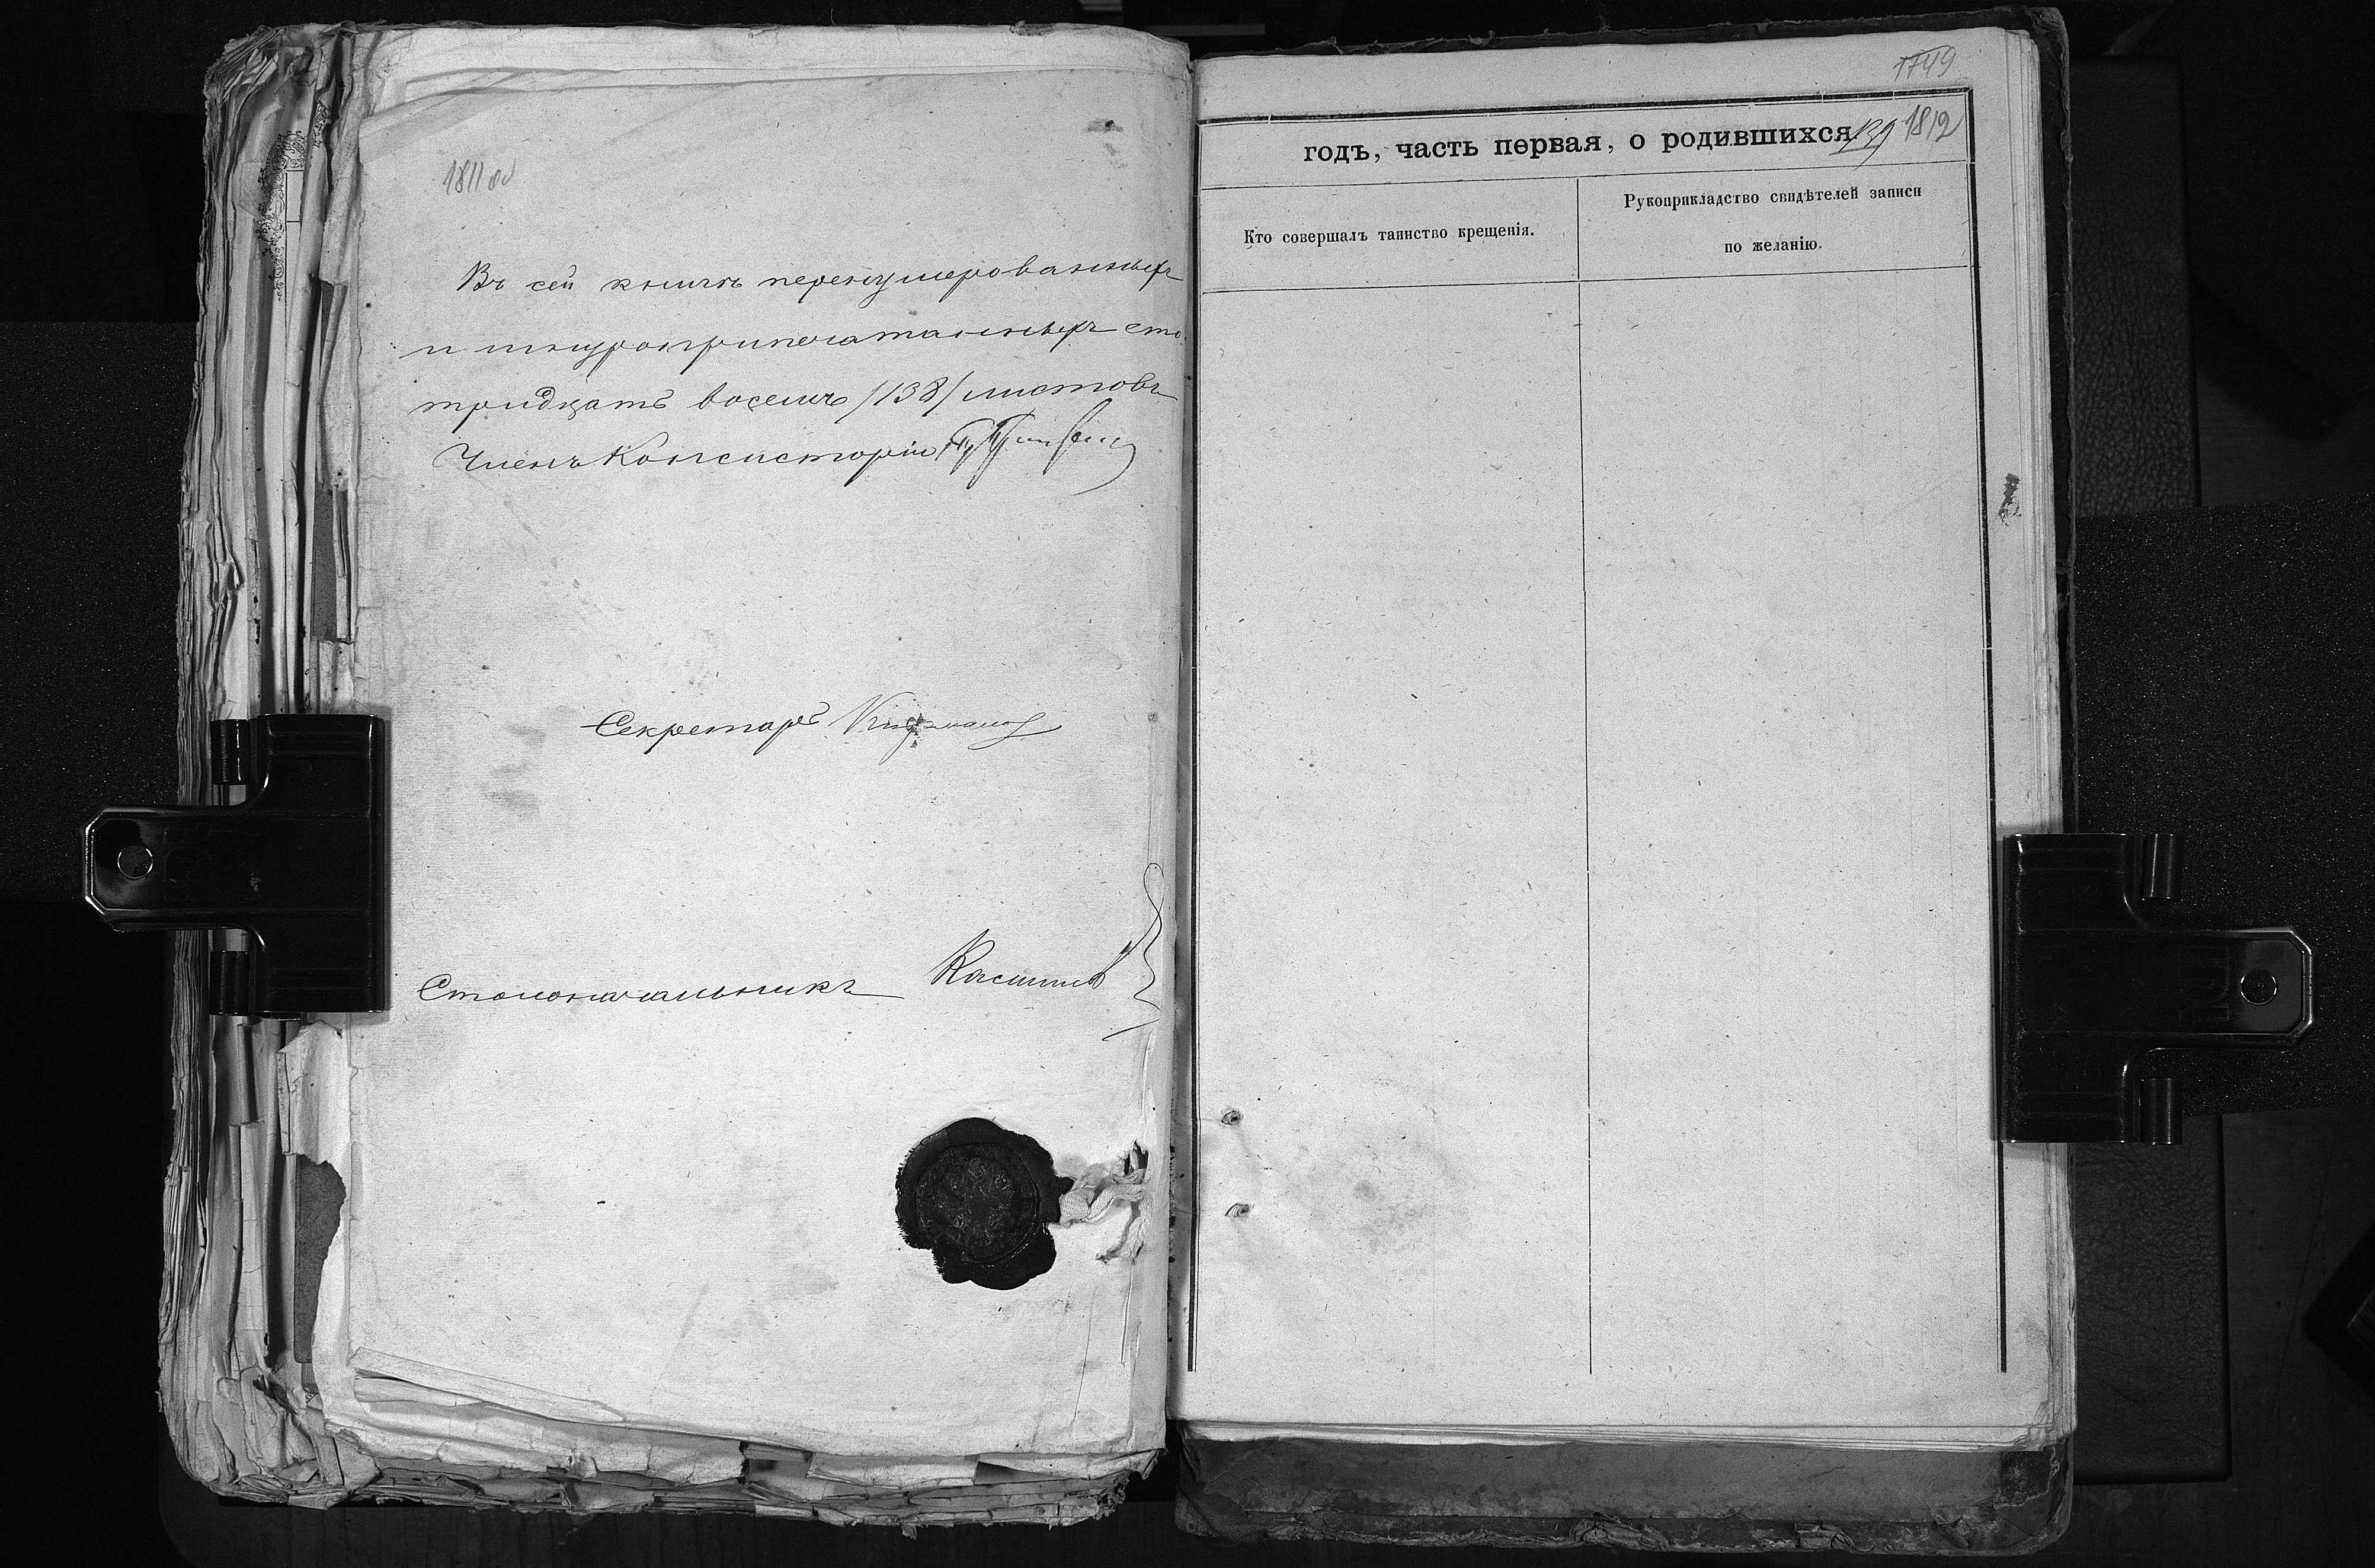 1811 об
Въ сей книгѣ перенумерованныхъ
и шнуроприпечатанныхъ сто
тридцать восемь /138/ листовъ
Членъ Консисторіи
Секретарь
Столоначальникъ
1749
годъ, часть первая, о родившихся. 139 1812
Кто совершалъ таинство крещенія.
Рукоприкладство свидѣтелей записи
по желанію.